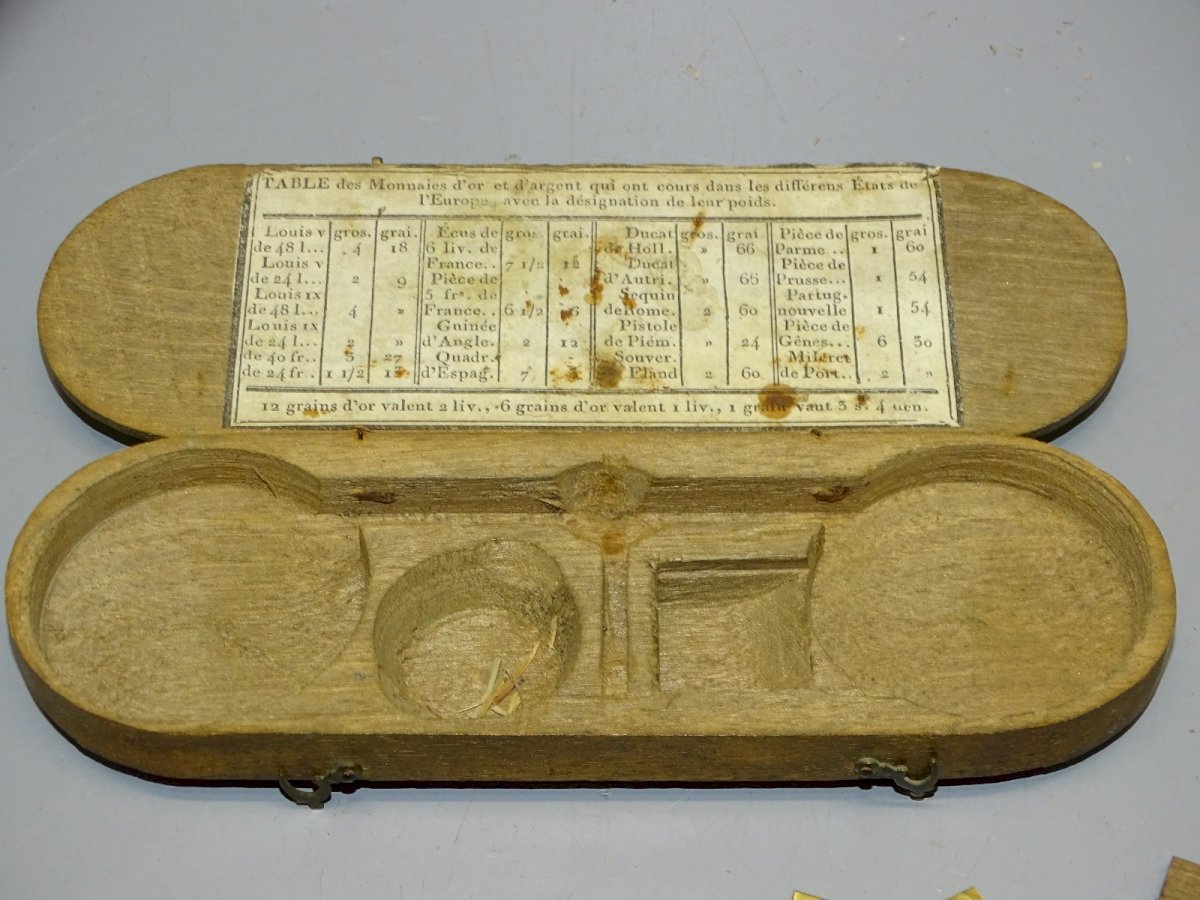 TABLE des Monnaies d'or et d'argent qui ont cours dans les différens États de
l'Europe, avec la désignation de leur poids.
Louis v gros. grai. Écus de gros. grai. Ducat gros. grai Pièce de gros. grai
de 48 l... 4 18 6 liv. de de Holl. » 66 Parme... 1 60
Louis v France.. 7 1/2 12 Ducat Pièce de
de 24 l... 2 9 Pièce de d'Autri. » 66 Prusse... 1 54
Louis IX 5 frs. de Sequin Partug.
de 48 l... 4 » France.. 6 1/2 de Rome. 2 60 nouvelle 1 54
Louis IX Guinée Pistole Pièce de
de 24 l... 2 » d'Angle. 2 12 de Piém. » 24 Gênes... 6 30
de 40 fr.. 3 27 Quadr. Souver. Mileret
de 24 fr.. 1 1/2 13 d'Espag. 7 Fland 2 60 de Port.. 2 »
12 grains d'or valent 2 liv., 6 grains d'or valent 1 liv., 1 grain vaut 3 s. 4 den.